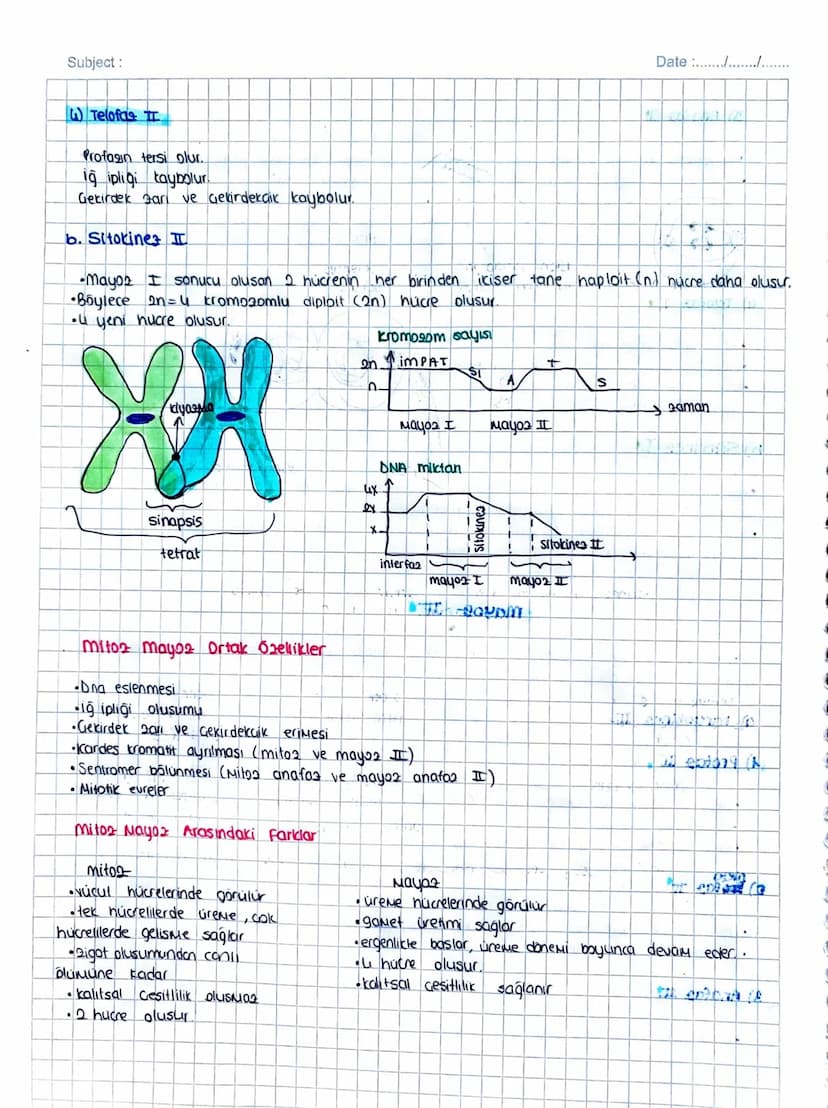 Subject :
Date :......./......./.......
4) Telofaz II
Profazın tersi olur.
İğ ipliği kaybolur.
Çekirdek zarı ve çekirdekcik kaybolur.
b. Sitokinez II
•Mayoz I sonucu oluşan 2 hücrenin her birinden ikişer tane haploit (n) hücre daha oluşur.
•Böylece 2n=4 kromozomlu diploit (2n) hücre oluşur.
•4 yeni hücre oluşur.
Kromozom sayısı
2n
İMPAT
Sı
A
T
S
n
zaman
Mayoz I
Mayoz II
kiyazma
sinapsis
tetrat
DNA miktarı
4x
2x
x
sitokinez
sitokinez II
interfaz
mayoz I
mayoz II
Mitoz Mayoz Ortak Özellikler
•Dna eşlenmesi
•İğ ipliği oluşumu
•Çekirdek zarı ve çekirdekcik erimesi
•Kardeş kromatit ayrılması (mitoz ve mayoz II)
•Sentromer bölünmesi (Mitoz anafaz ve mayoz anafaz II)
•Mitotik evreler
Mitoz Mayoz Arasındaki Farklar
mitoz
•vücut hücrelerinde görülür
•tek hücrelilerde üreme, çok
hücrelilerde gelişme sağlar
•zigot oluşumundan canlı
ölümüne kadar
•kalıtsal çeşitlilik oluşmaz
•2 hücre oluşur
Mayoz
•üreme hücrelerinde görülür
•gamet üretimi sağlar
•ergenlikle başlar, üreme dönemi boyunca devam eder.
•4 hücre oluşur.
•kalıtsal çeşitlilik sağlanır